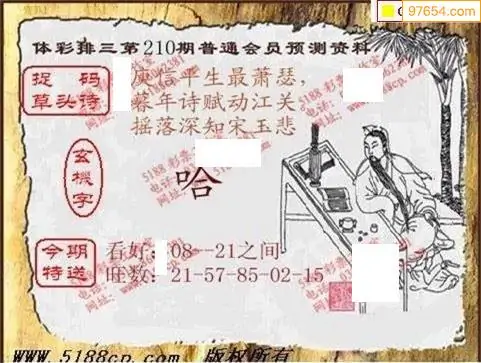 97654.com
体彩排三第210期普通会员预测资料
捉 码
草头诗
庾信平生最萧瑟,
暮年诗赋动江关
摇落深知宋玉悲
玄機字
哈
今期
特送
看好: 08--21之间
旺数: 21-57-85-02-15
www.5188cp.com 版权所有